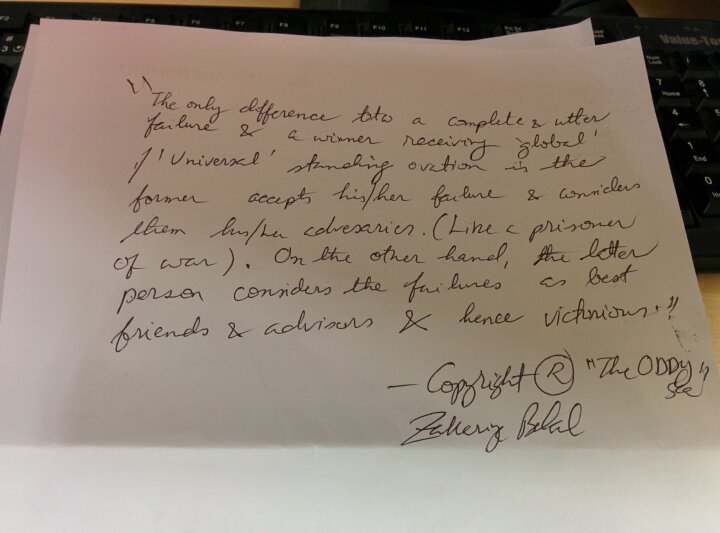 "The only difference btw a complete & utter
failure & a winner receiving 'global'
/'Universal' standing ovation is the
former accepts his/her failure & considers
them his/her adversaries. (Like a prisoner
of war). On the other hand, the latter
person considers the failures as best
friends & advisors & hence victorious."
— Copyright ® "The ODDy
see"
Zakeriya Belal
F2 F5 F6 F7 F8 F9 F10 F11 F12
Value-To
#
3
Num
Lock
/
7
Home
8
4
←
1
End
0